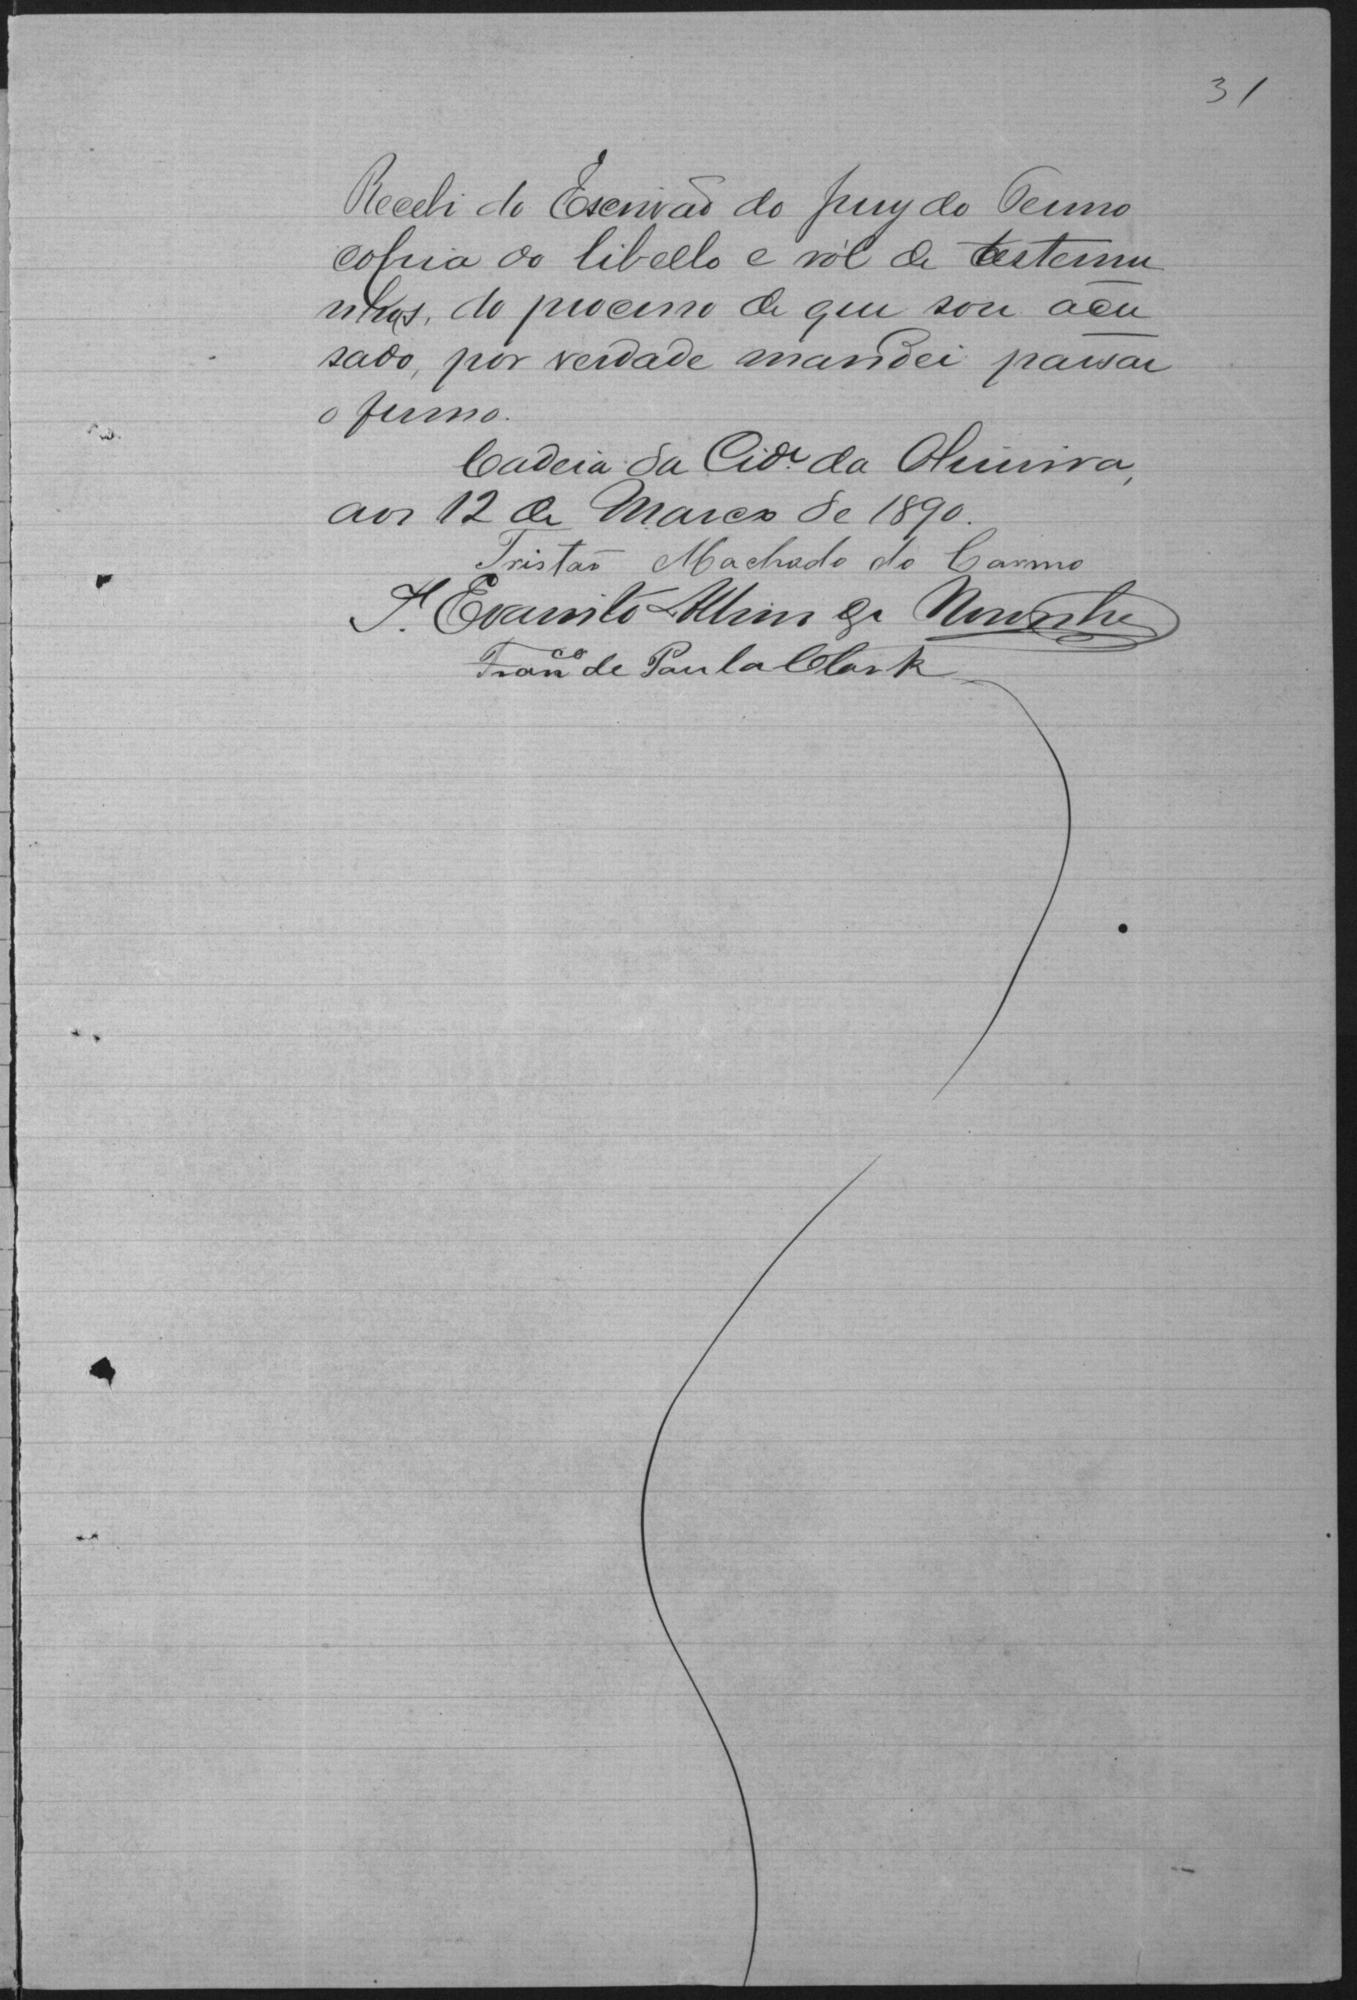 31
Recebi do Escrivão do Jury do Termo
copia do libello e ról de testemu
nhas, do processo de que sou accu
sado, por verdade mandei passar
o firmo.
Cadeia da Cid.e da
aos 12 de Março de 1890.
Tristão Machado do Carmo
T. Evaristo de
Fran.co de Paula Clark